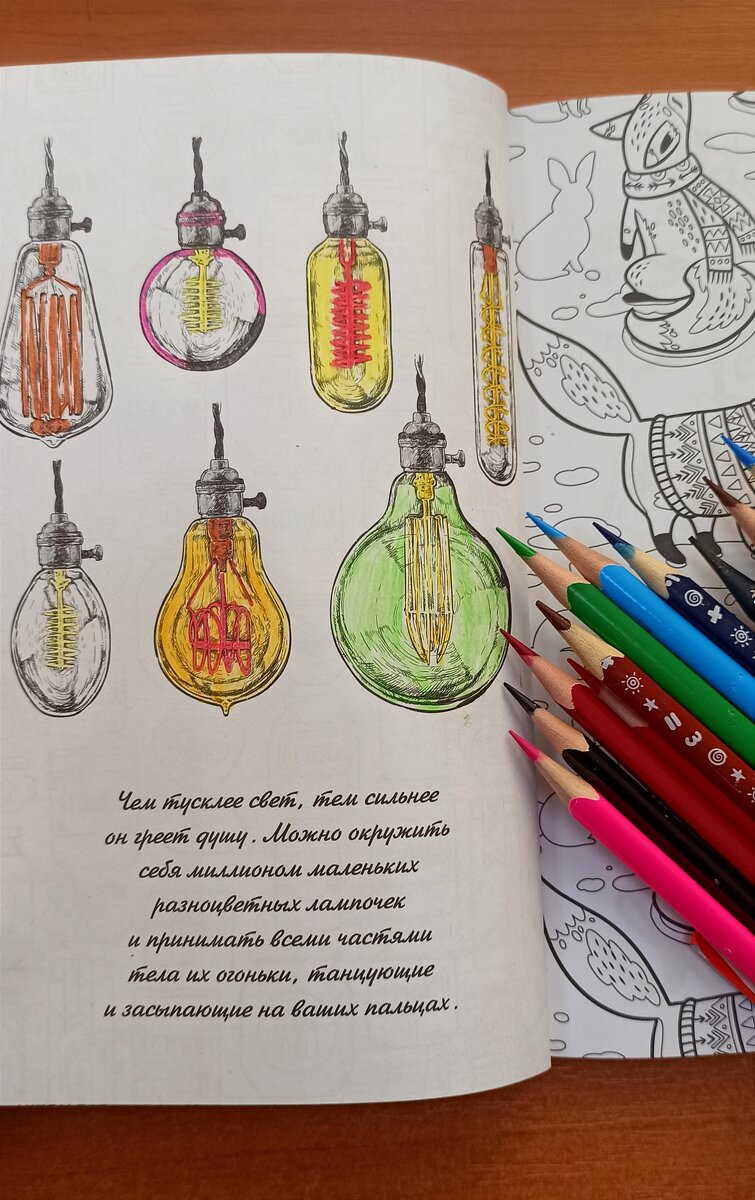 Чем тусклее свет, тем сильнее
он греет душу. Можно окружить
себя миллионом маленьких
разноцветных лампочек
и принимать всеми частями
тела их огоньки, танцующие
и засыпающие на ваших пальцах.
= 3